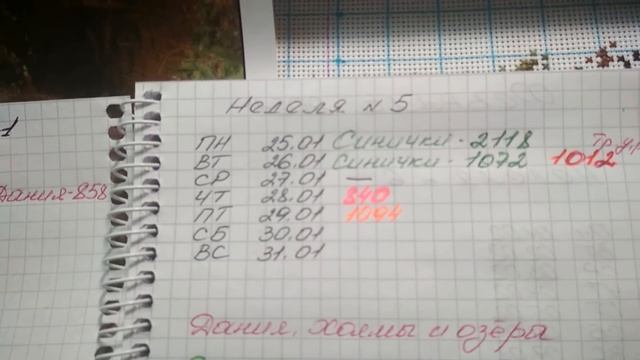 Неделя № 5
ПН 25.01 Синички - 2118
ВТ 26.01 Синички - 1072 1012
СР 27.01 —
ЧТ 28.01 840
ПТ 29.01 1094
СБ 30.01
ВС 31.01
Дания, холмы и озёры
1
Дания-858